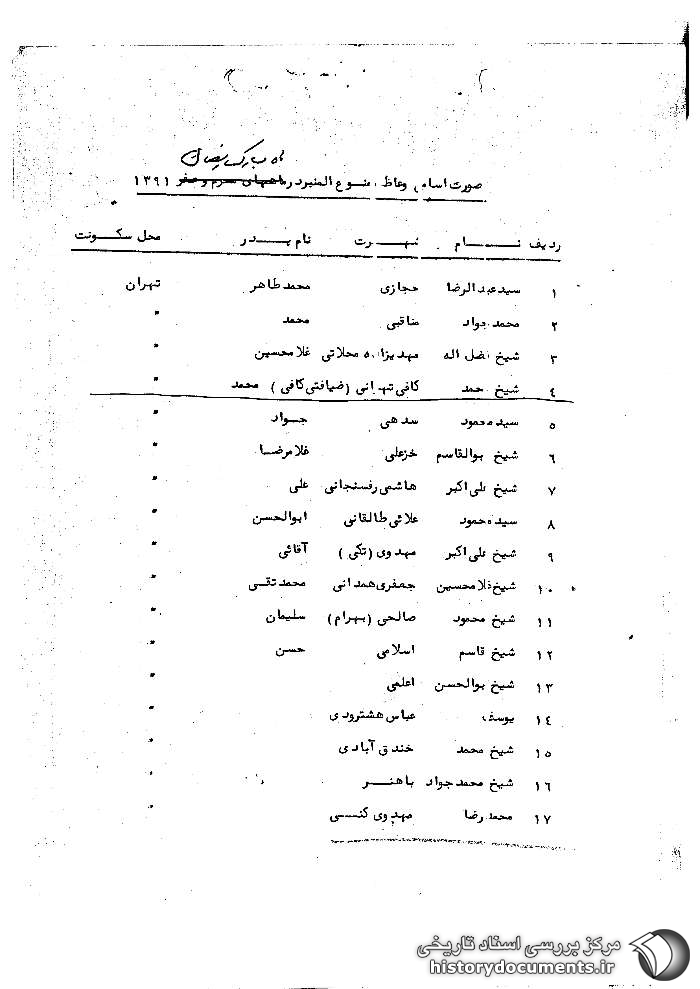 ماه مبارک رمضان
صورت اسامی وعاظ ممنوع المنبر در ماههای محرم و صفر ۱۳۹۱
ردیف نام شهرت نام پدر محل سکونت
۱ سید عبدالرضا حجازی محمد طاهر تهران
۲ محمد جواد مناقبی محمد "
۳ شیخ فضل اله مهدیزاده محلاتی غلامحسین "
۴ شیخ احمد کافی تهرانی (ضیافتی کافی) محمد "
۵ سید محمود سدهی جواد "
۶ شیخ بوالقاسم خزعلی غلامرضا "
۷ شیخ علی اکبر هاشمی رفسنجانی علی "
۸ سید محمود علائی طالقانی ابوالحسن "
۹ شیخ علی اکبر مهدوی (تکی) آقائی "
۱۰ شیخ غلامحسین جعفری همدانی محمد تقی "
۱۱ شیخ محمود صالحی (بهرام) سلیمان "
۱۲ شیخ قاسم اسلامی حسن "
۱۳ شیخ بوالحسن اعلمی "
۱۴ یوسف عباس هشترودی "
۱۵ شیخ محمد خندق آبادی "
۱۶ شیخ محمد جواد باهنر "
۱۷ محمد رضا مهدوی کنسی "
مرکز بررسی اسناد تاریخی
historydocuments.ir